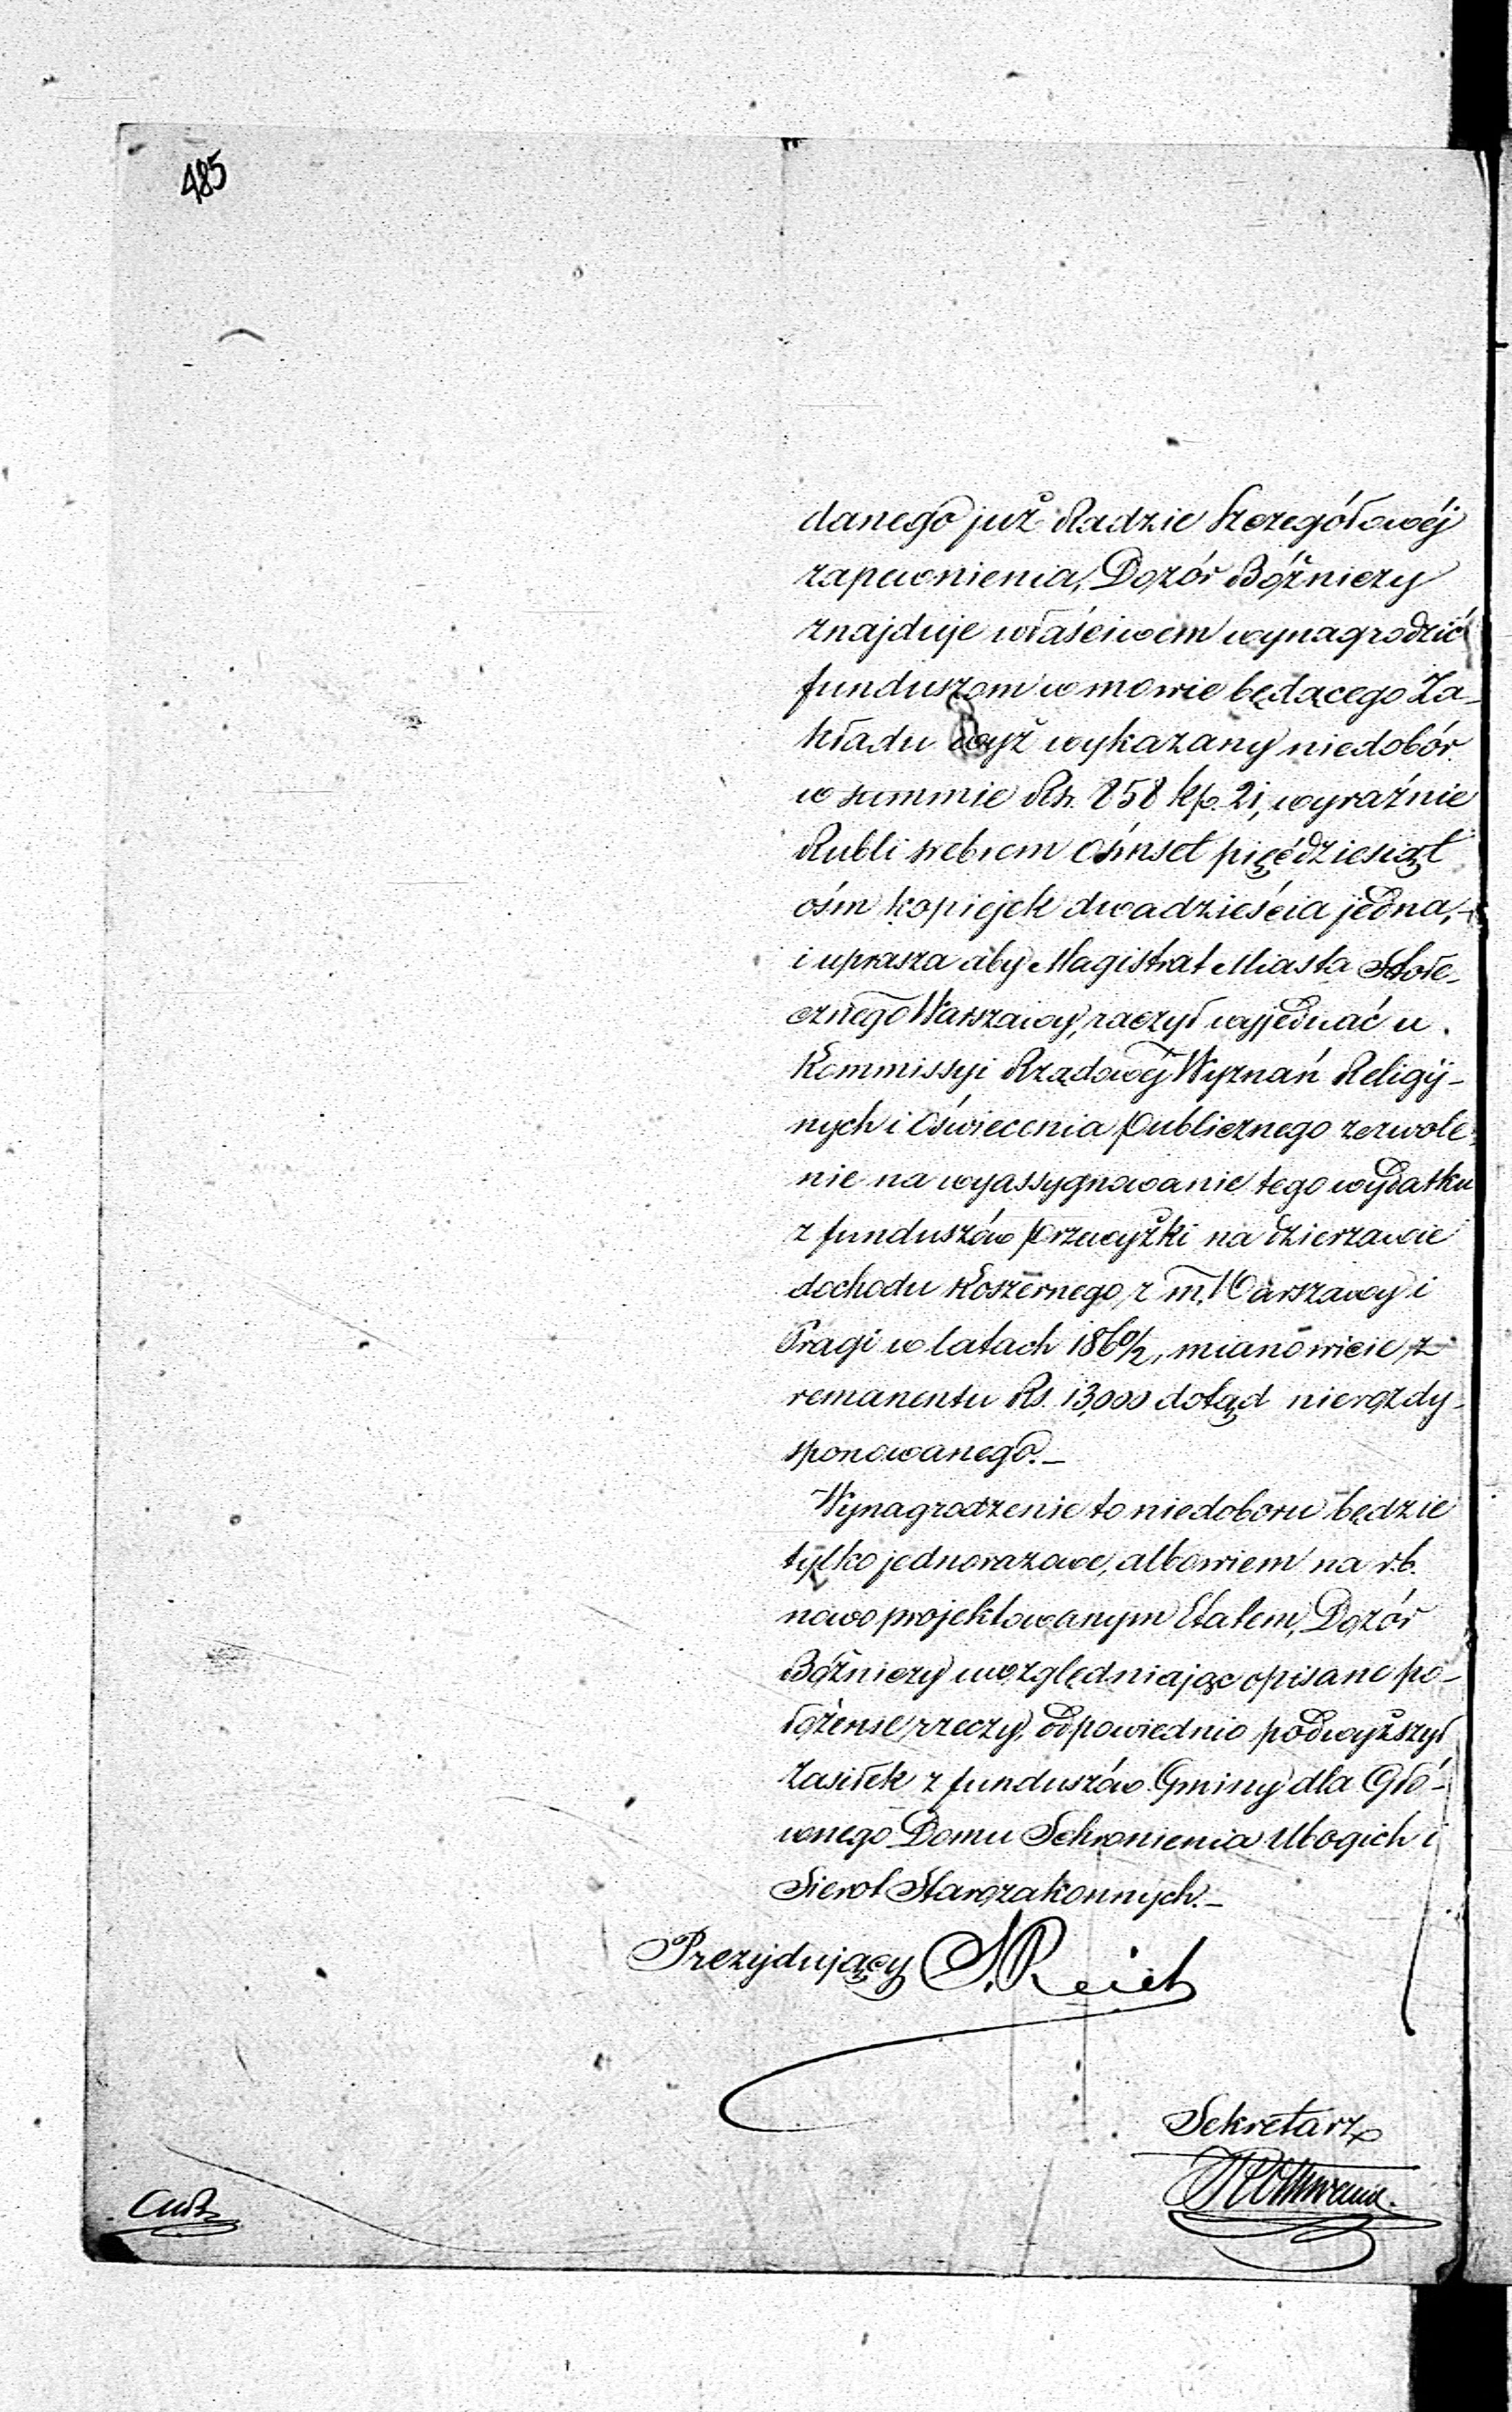 485
danego już Radzie Szczegółowéj
zapewnienia, Dozór Bóżniczy
znajduje właściwem wynagrodzić
funduszom w mowie będącego Za-
kładu wyż wykazany niedobór
w summie Rs. 858 kp. 21, wyraźnie
Rubli srebrem ośmset pięćdziesiąt
ośm kopiejek dwadzieścia jedna,
i uprasza aby Magistrat Miasta Stołe-
cznego Warszawy, raczył wyjednać u
Kommissyi Rządowéj Wyznań Religij-
nych i Oświecenia Publicznego zezwole-
nie na wyassygnowanie tego wydatku
z funduszów przewyżki na dzierżawie
dochodu Koszernego z m. Warszawy i
Pragi w latach 1860/2, mianowicie z
remanentu Rs. 13,000 dotąd nierozdy-
sponowanego.–
Wynagrodzenie to niedoboru będzie
tylko jednorazowe, albowiem na r.b.
nowo projektowanym Etatem, Dozór
Bóżniczy uwzględniając opisane po-
łożenie rzeczy, odpowiednio podwyższył
zasiłek z funduszów Gminy dla Głó-
wnego Domu Schronienia Ubogich i
Sierot Starozakonnych.–
Prezydujący S. Reich
Sekretarz